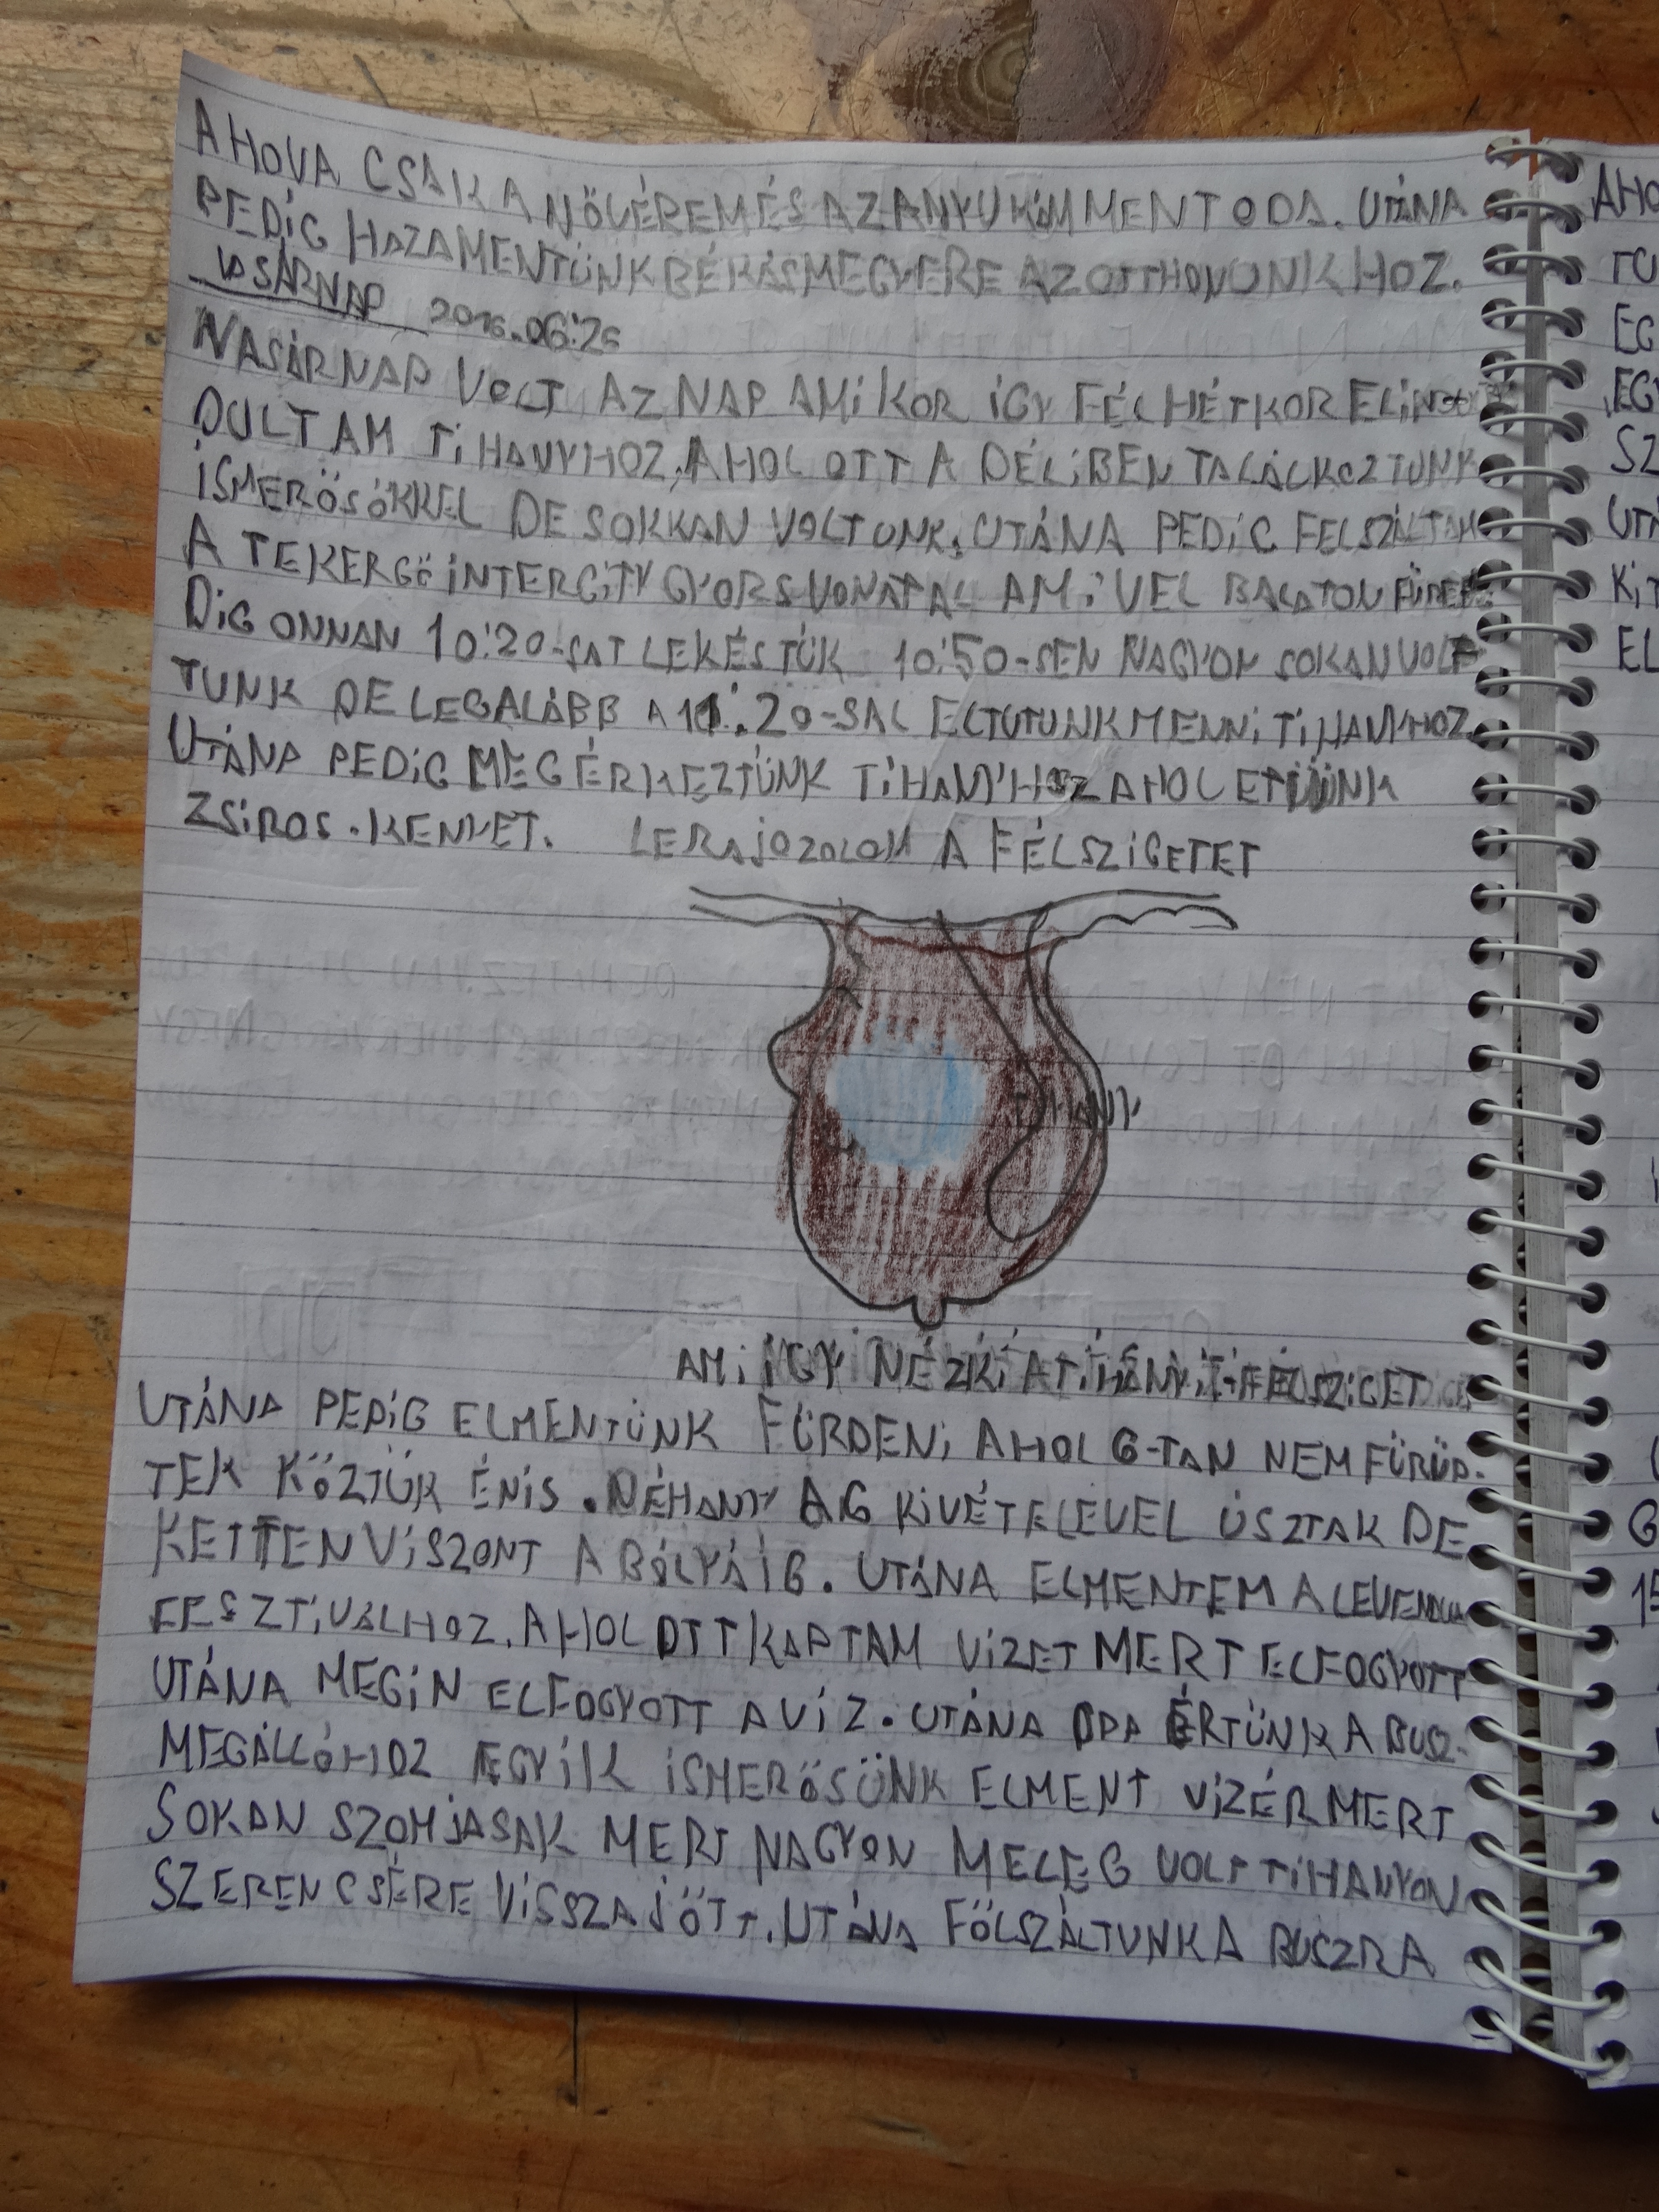 AHOVA CSAK A NŐVÉREM ÉS AZ ANYUKÁM MENT ODA. UTÁNA
PEDIG HAZAMENTÜNK BÉKÁSMEGYERE AZ OTTHONUNKHOZ.
VASÁRNAP 2016.06.26
VASÁRNAP VOLT AZ NAP AMIKOR ÍGY FÉLHÉTKOR ELIN
DULTAM TIHANYHOZ, AHOL OTT A DÉLIBEN TALÁLKOZTUNK
ISMERŐSÖKKEL DE SOKKAN VOLTUNK. UTÁNA PEDIG FELSZÁLTAM
A TEKERGŐ INTERCITY GYORSVONATAL AMIVEL BALATONFÜRED
DIG ONNAN 10:20-SAT LEKÉSTÜK 10:50-SEN NAGYON SOKAN VOL
TUNK DE LEGALÁBB A 11:20-SAL ELTUTUNK MENNI TIHANYHOZ.
UTÁNA PEDIG MEGÉRKEZTÜNK TIHANYHOZ AHOL ETTÜNK
ZSIROS.KENYET. LERAJOZOLOM A FÉLSZIGETET
TIHANY
AMI ÍGY NÉZKI A TIHANYI-FÉLSZIGET
UTÁNA PEDIG ELMENTÜNK FÜRDENI AHOL 6-TAN NEM FÜRÜD-
TEK KÖZTÜK ÉNIS. NÉHANY A 6 KIVÉTELEVEL ÚSZTAK DE
KETTEN VISZONT A BÓLYÁIG. UTÁNA ELMENTEM A LEVENDULA
FESZTIVÁLHOZ. AHOL OTT KAPTAM VIZET MERT ELFOGYOTT
UTÁNA MEGIN ELFOGYOTT A VÍZ. UTÁNA ODA ÉRTÜNK A BUSZ-
MEGÁLLÓHOZ EGYIK ISMERŐSÜNK ELMENT VIZÉR MERT
SOKAN SZOMJASAK MERT NAGYON MELEG VOLT TIHANYON
SZERENCSÉRE VISSZAJÖTT. UTÁNA FÖLSZÁLTUNK A BUSZRA
AHO
EG
EGY
SZ
UTÁ
KIT
EL